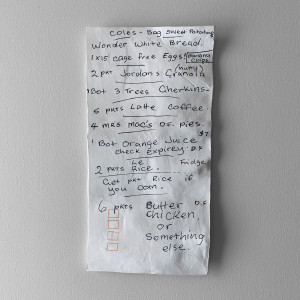 Coles - Bag Sweet Potatoes
Wonder White Bread.
1x15 cage free Eggs (Banana Chips
2 pkt Jordans Granola (nutty)
1 Bot 3 Trees Gherkins
5 pkts Latte Coffee
4 mrs mac's D.F. pies.
1 Bot Orange Juice $7
check expirey D.F
2 pkts Le Rice. Fridge
Get pkt Rice if
you can.
6 pkts Butter D.F
Chicken
or
Something
else.